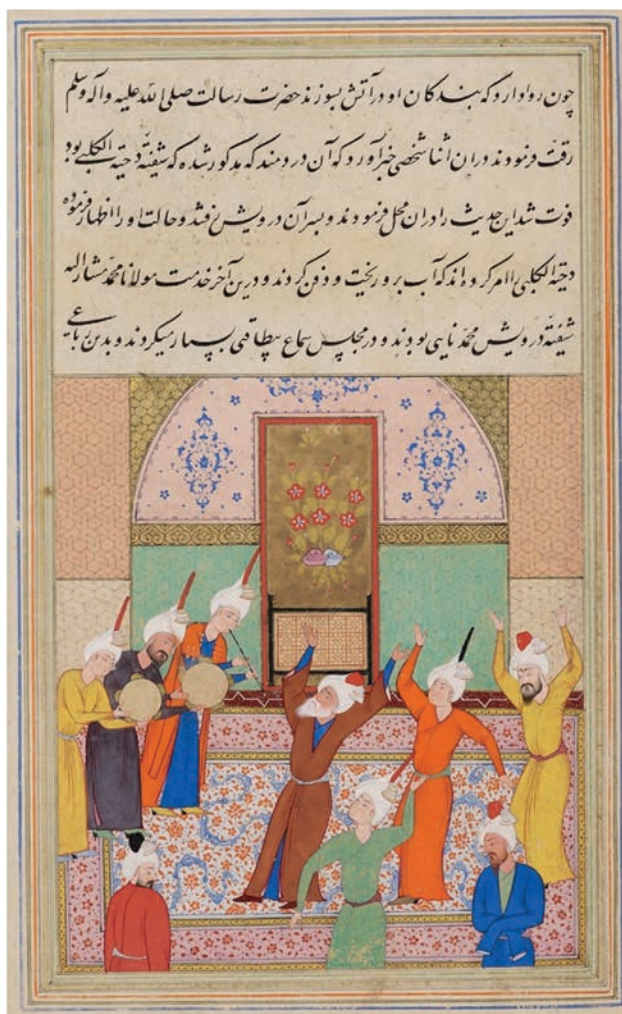 چون روا دارد که بندکان او در آتش بسوزند حضرت رسالت صلی الله علیه وآله وسلم
رقت فرمودند در ان اثنا شخصی خبر آورد که آن دردمند که مذکور شده که شیفته دحیة الکلبی بود
فوت شد این حدیث را در ان محل فرمودند و بسر آن درویش رفتند و حالت او را اظهار فرموده
دحیة الکلبی را امر کرده اند که آب برو ریخت و دفن کردند و درین آخر خدمت مولانا محمد مشار الیه
شیفته درویش محمد نایی بودند و در مجلس سماع بیطاقتی بسیار میکردند و بدین رباعی